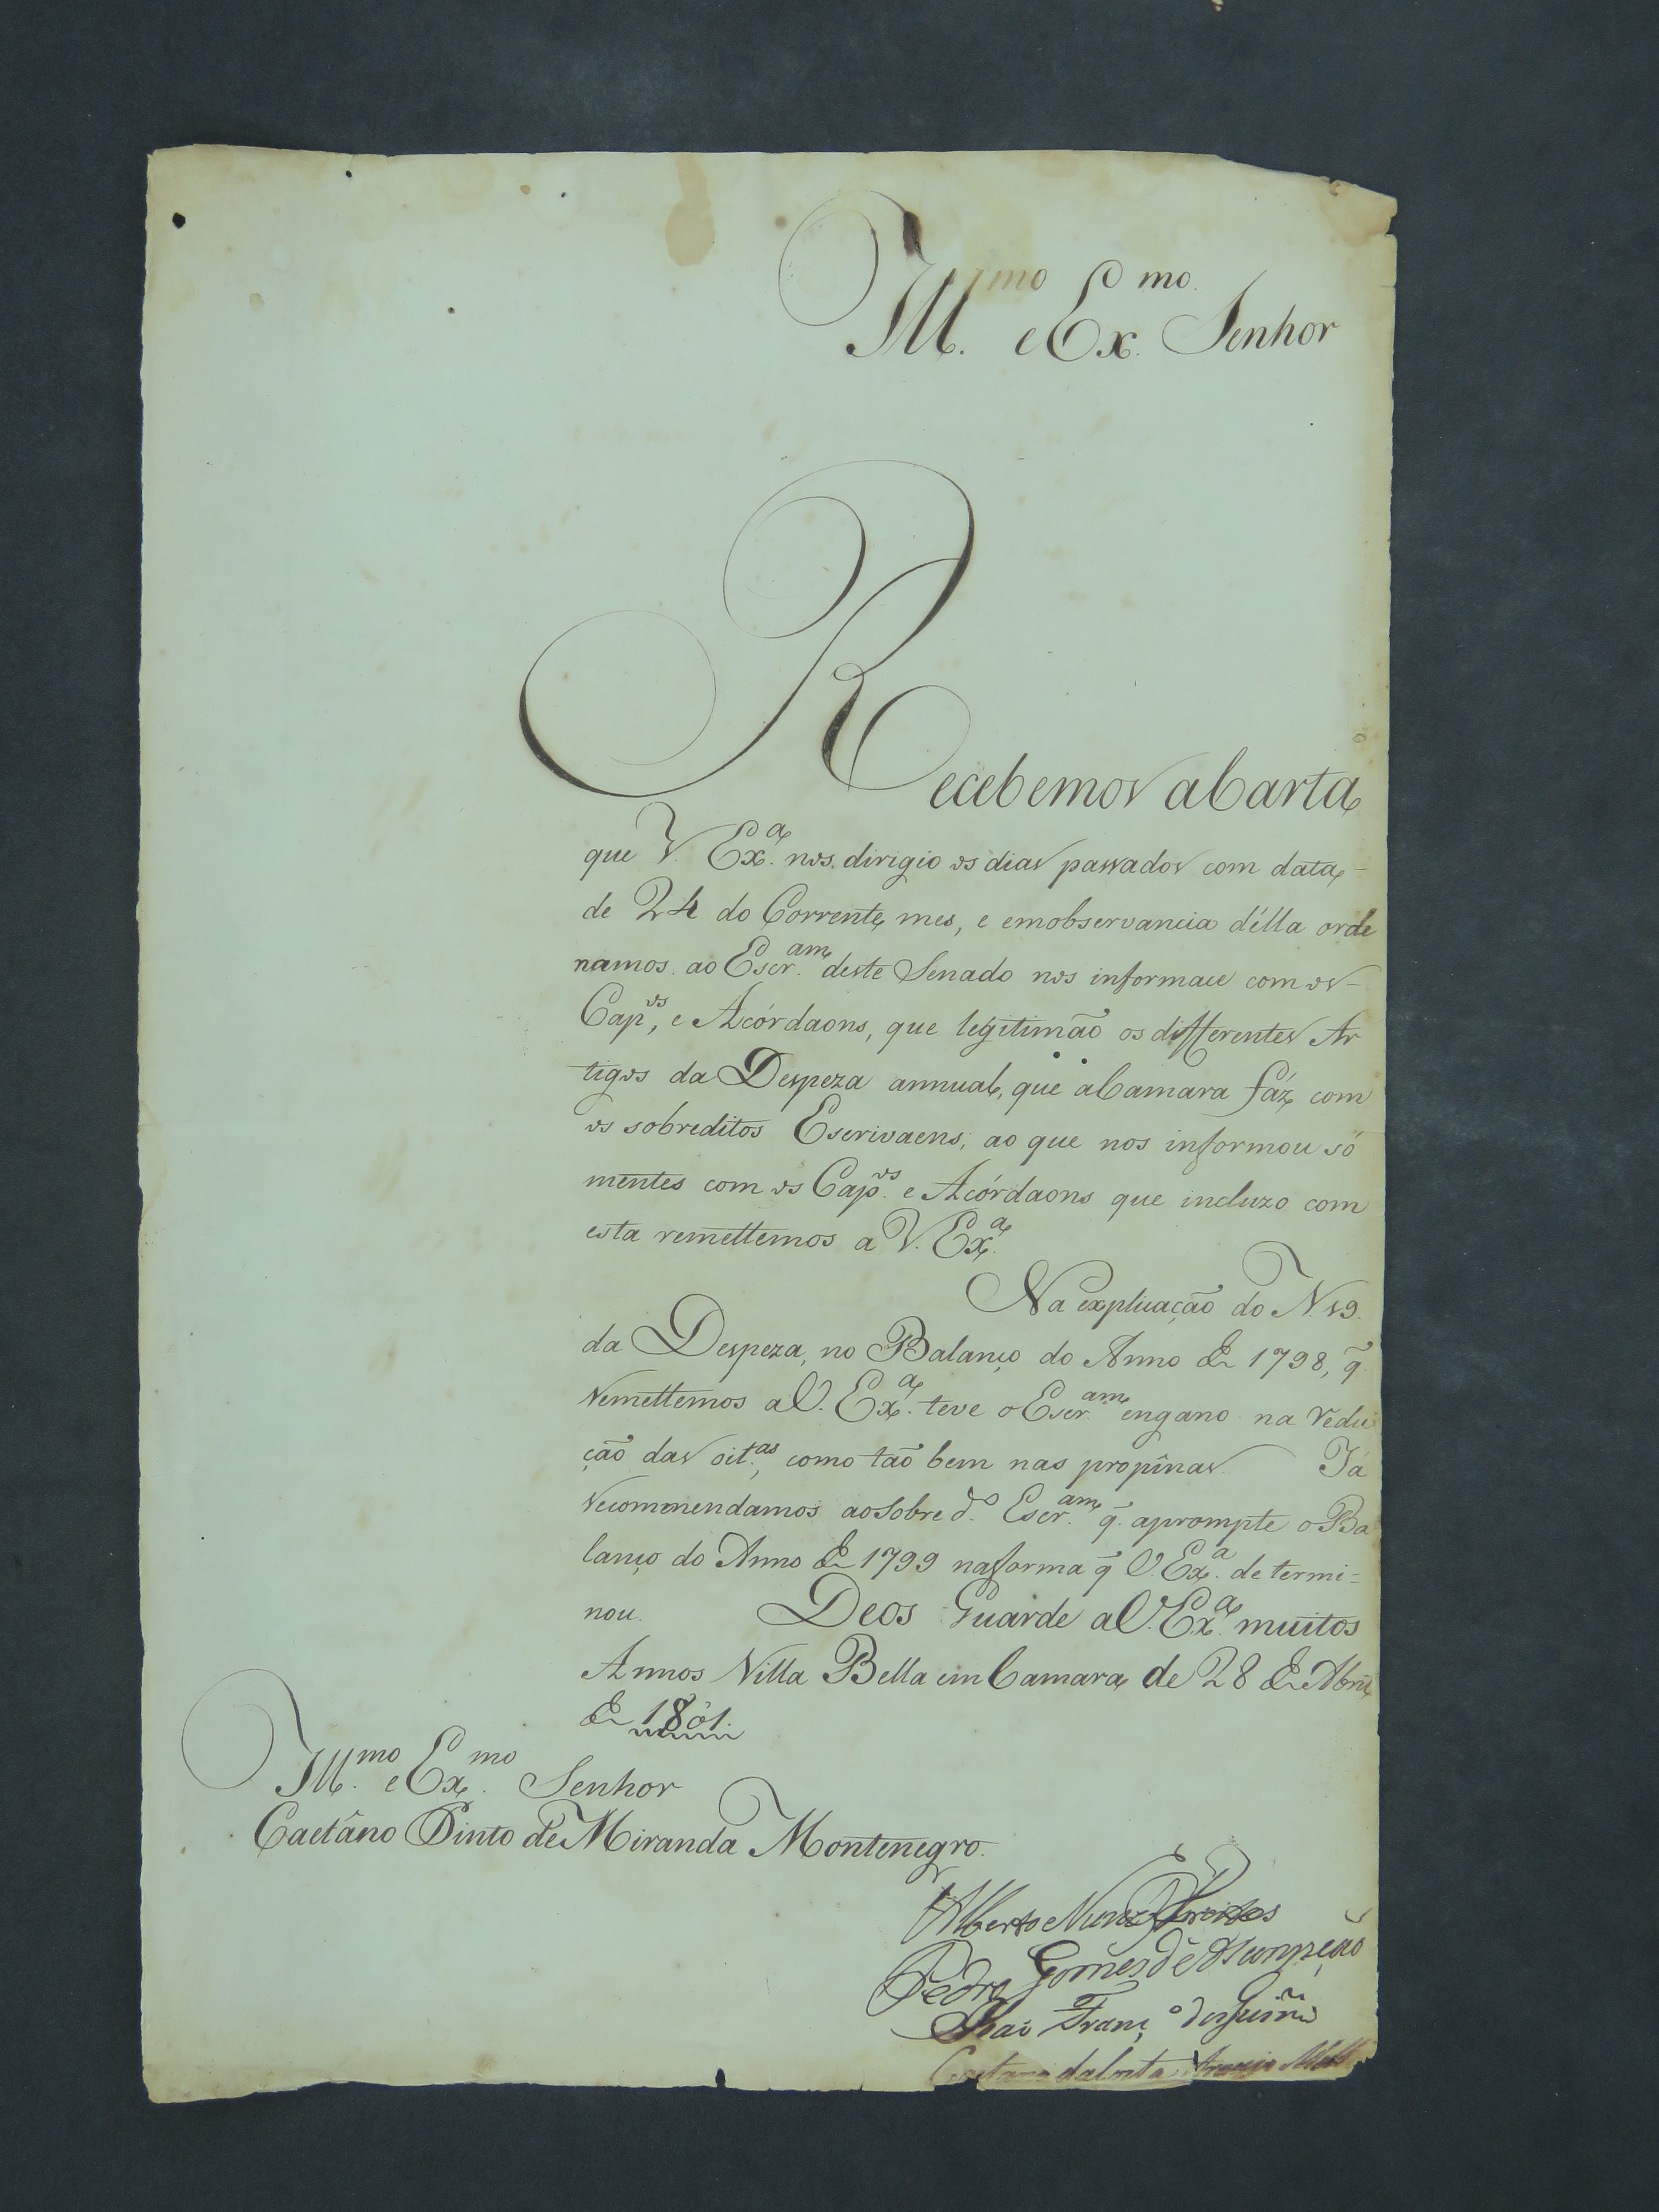 Ill.mo e Ex.mo Senhor
Recebemos a Carta
que V. Ex.ª nos dirigio os dias passados com data
de 24 do Corrente mes, e em observancia d'élla orde
namos ao Escr.am deste Senado nos informace com os
Cap.os, e Acórdaons, que legitimão os differentes Ar
tigos da Despeza annual, que a Camara fáz com
os sobreditos Escrivaens; ao que nos informou só
mentes com os Cap.os e Acórdaons que incluzo com
esta remettemos a V. Ex.ª
Na explicação do N. 19.
da Despeza, no Balanço do Anno de 1798, q̃
remettemos a V. Ex.ª teve o Escr.am engano na redu
ção das oit.as, como tão bem nas propînas. Já
recommendamos ao sobre d.o Escr.am q̃ aprompte o Ba
lanço do Anno de 1799 na forma q̃ V. Ex.ª de termi=
nou. Deos Guarde a V. Ex.ª muitos
Annos Villa Bella em Camara de 28 de Abril
de 1801.
Ill.mo e Ex.mo Senhor
Caetâno Pinto de Miranda Montenegro.
Alberto Nunes
Pedro Gomes de Asumpção
Fran.co
Caetano da Costa Araujo